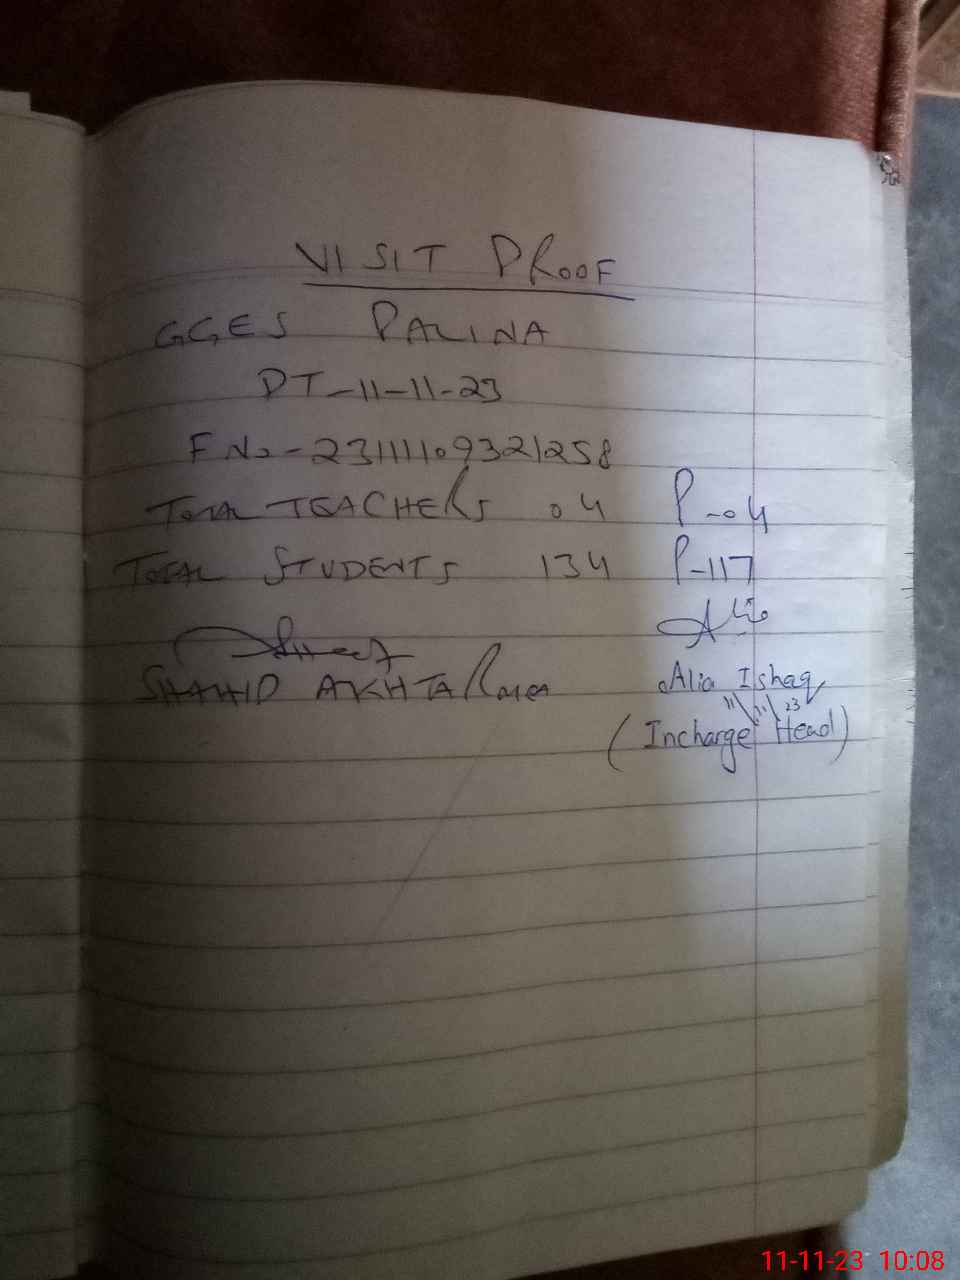 VISIT PROOF
GGES PALINA
DT-11-11-23
F No-23111109321258
TOTAL TEACHERS 04 P-04
TOTAL STUDENTS 134 P-117
SHAHID AKHTAR
Alia Ishaq
11\11\23
(Incharge Head)
11-11-23 10:08